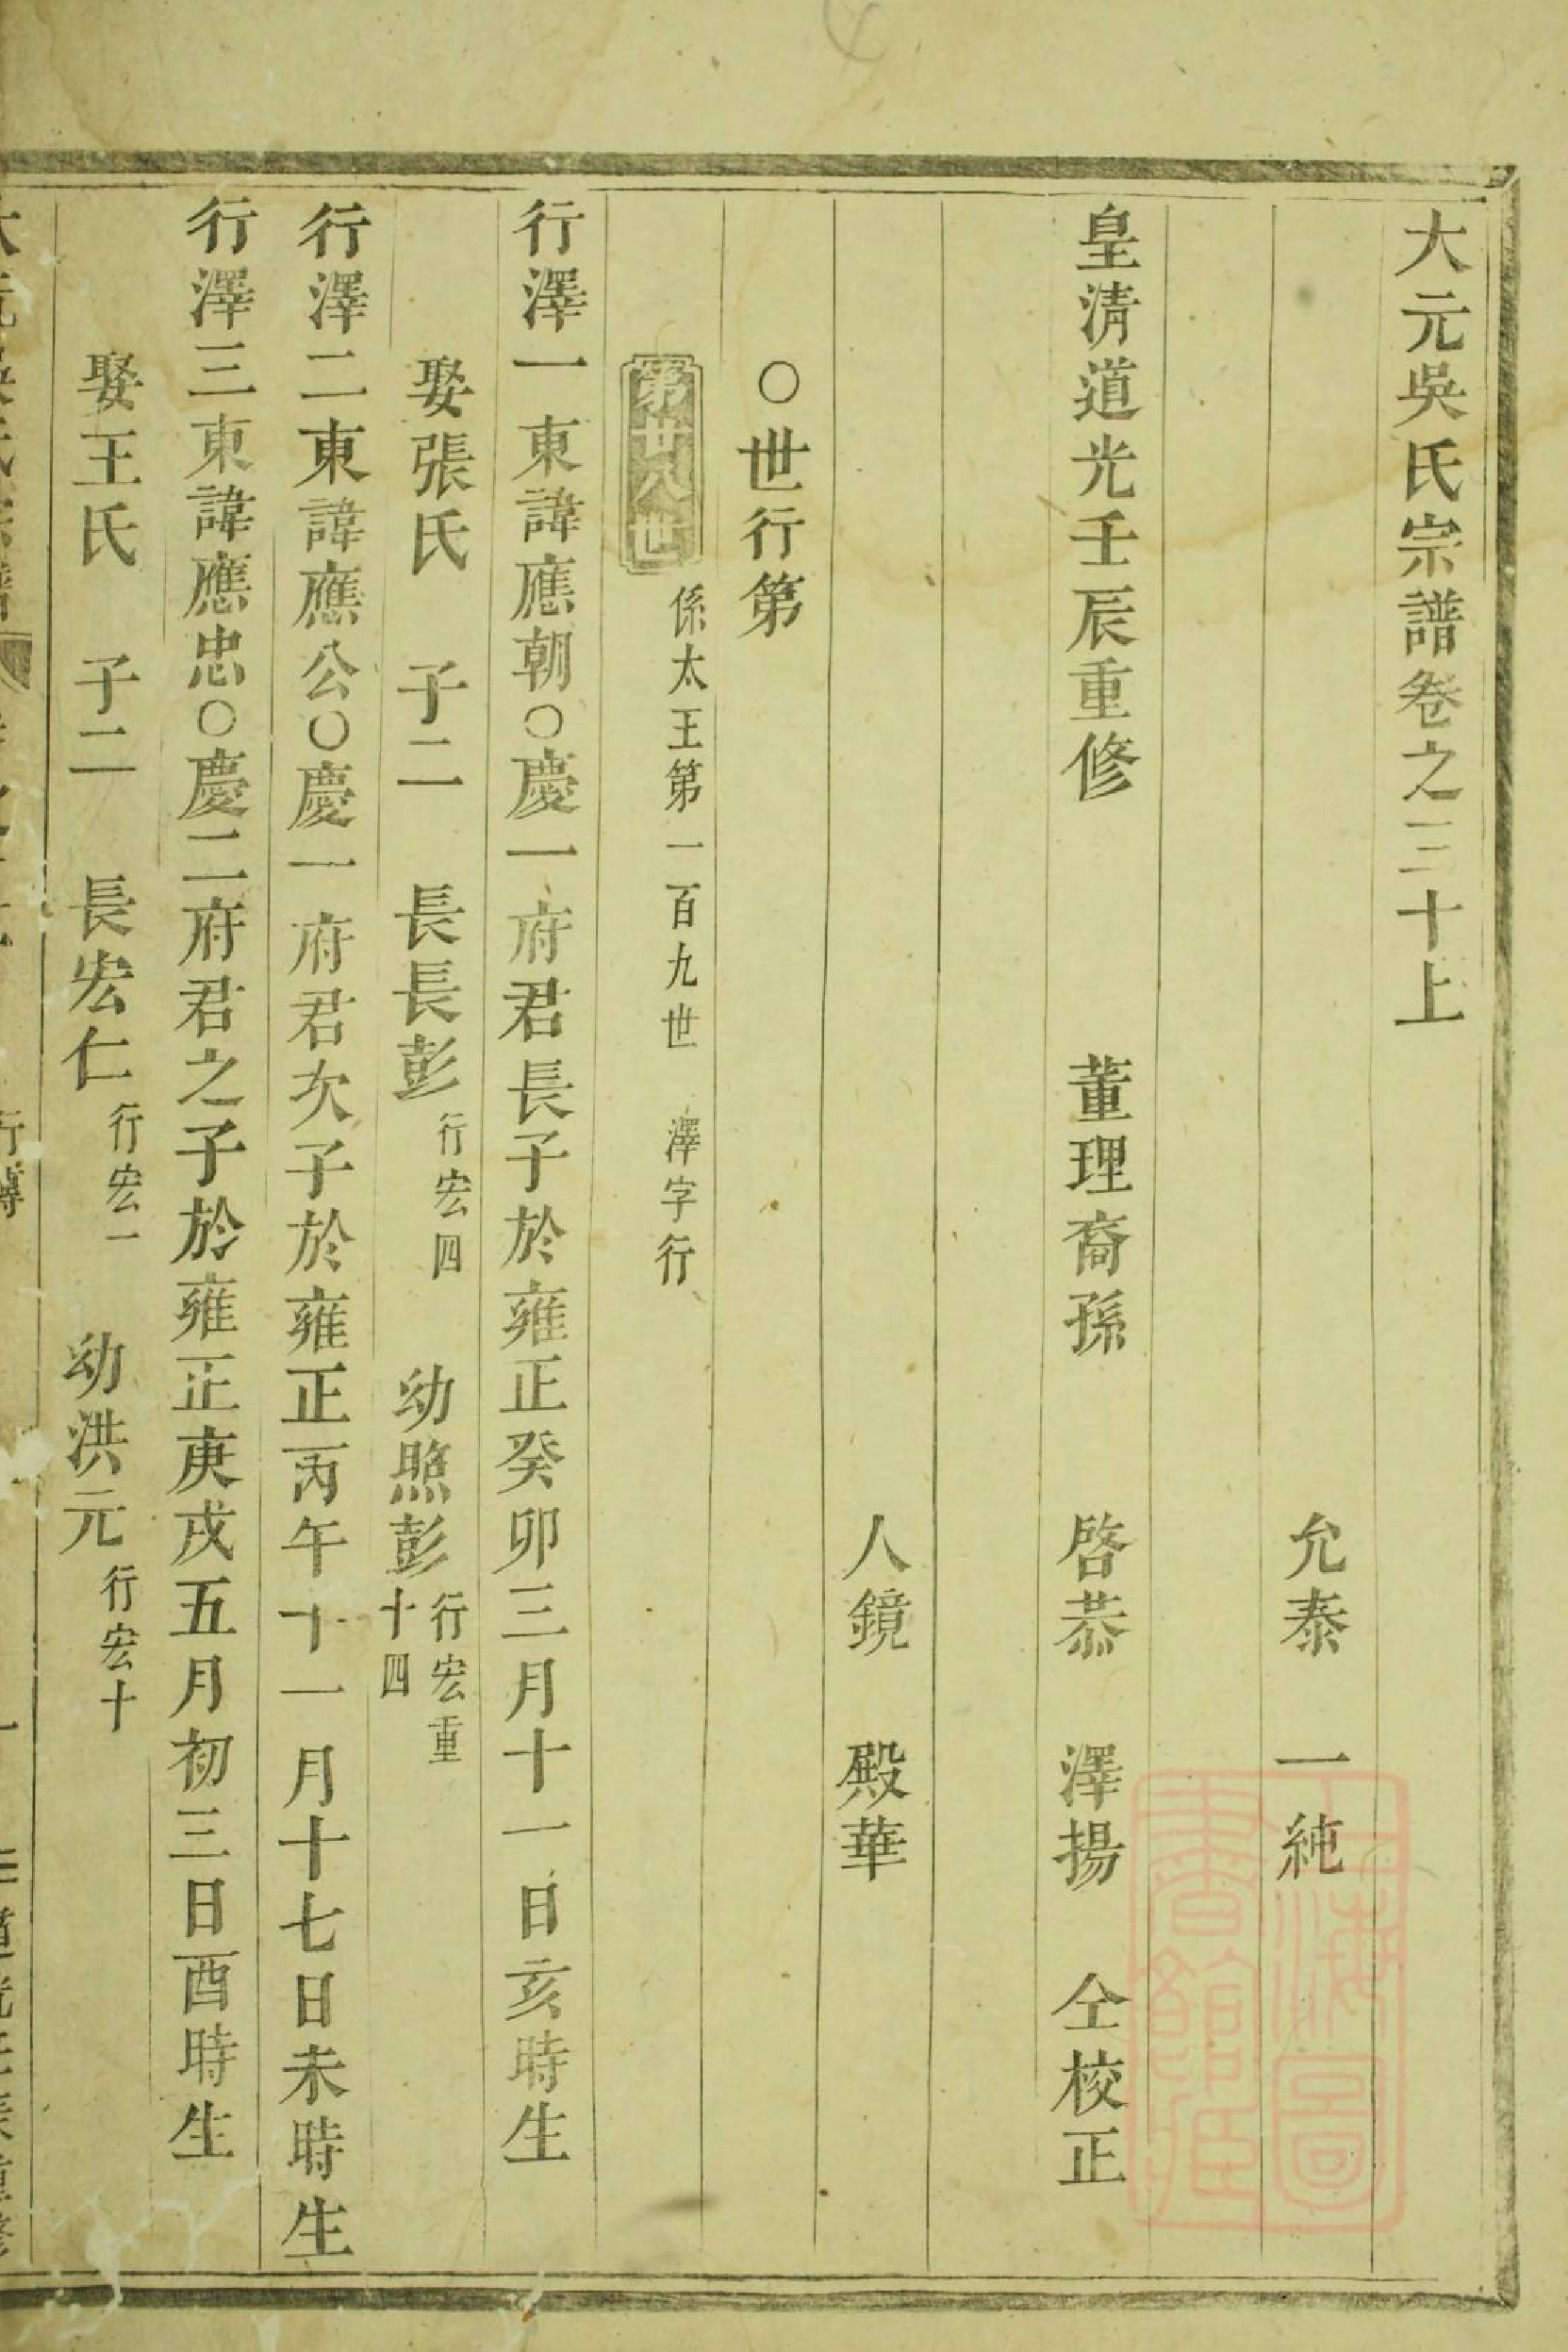 大元吳氏宗譜卷之三十上
允泰　一純
皇淸道光壬辰重修　董理裔孫　啓恭　澤揚　仝校正
人鏡　殿華
○世行第
第廿八世　係太王第一百九世　澤字行
行澤一東諱應朝○慶一府君長子於雍正癸卯三月十一日亥時生
娶張氏　子二　長長彭 行宏四　幼煕彭 行宏重十四
行澤二東諱應公○慶一府君次子於雍正丙午十一月十七日未時生
行澤三東諱應忠○慶二府君之子於雍正庚戌五月初三日酉時生
娶王氏　子二　長宏仁 行宏一　幼洪元 行宏十
上海圖書館藏